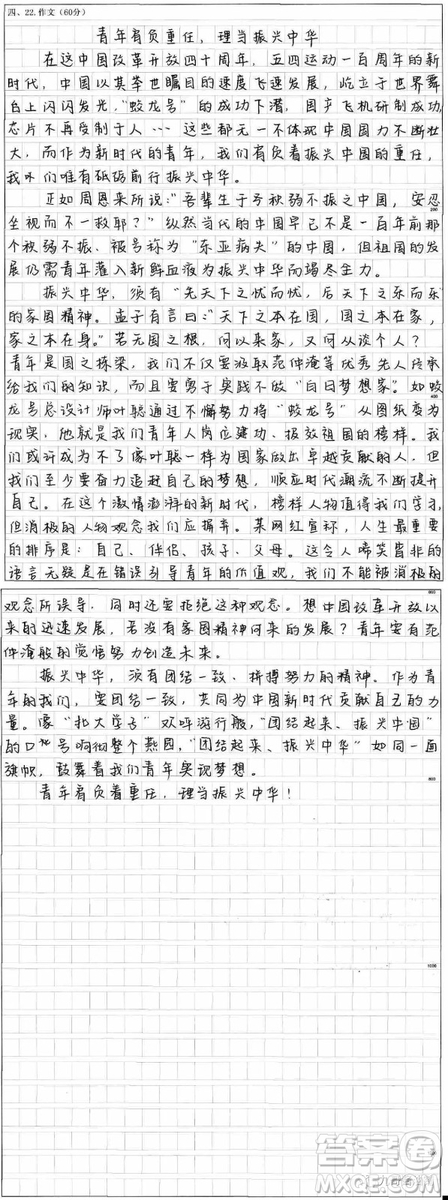 四、22.作文(60分)
青年肩负重任，理当振兴中华
在这中国改革开放四十周年，五四运动一百周年的新
时代，中国以其举世瞩目的速度飞速发展，屹立于世界舞
台上闪闪发光，"蛟龙号"的成功下潜，国产飞机研制成功
芯片不再受制于人……这些都无一不体现中国国力不断壮
大，而作为新时代的青年，我们肩负着振兴中国的重任，
我们唯有砥砺前行振兴中华。
正如周恩来所说："吾辈生于兮秋弱不振之中国，安忍
坐视而不一救耶？"纵然当代的中国早已不是一百年前那
个秋弱不振、被号称为"东亚病夫"的中国，但祖国的发
展仍需青年落入新鲜血液为振兴中华而竭尽全力。
振兴中华，须有"先天下之忧而忧，后天下之乐而乐"
的家国精神。孟子有言曰："天下之本在国，国之本在家，
家之本在身。"若无国之根，何以来家，又何从谈个人？
青年是国之栋梁，我们不仅要汲取范仲淹等优秀先人传承
给我们的知识，而且要勇于实践不做"白日梦想家"。如蛟
400
龙号总设计师叶聪通过不懈努力将"蛟龙号"从图纸变为
现实，他就是我们青年人岗位建功、报效祖国的榜样。我
们或许成为不了像叶聪一样为国家做出卓越贡献的人，但
我们至少要奋力追赶自己的梦想，顺应时代潮流不断提升
自己。在这个激情澎湃的新时代，榜样人物值得我们学习，
但消极的人物观念我们应摒弃。某网红宣称，人生最重要
的排序是：自己、伴侣、孩子、父母。这令人啼笑皆非的
语言无疑是在错误引导青年的价值观，我们不能被消极的
观念所误导，同时还要拒绝这种观念。想中国改革开放以
来的迅速发展，若没有家国精神何来的发展？青年要有范
仲淹般的觉悟努力创造未来。
振兴中华，须有团结一致、拼搏努力的精神。作为青
年的我们，要团结一致，共同为中国新时代贡献自己的力
量。像"北大学子"欢呼游行般，"团结起来、振兴中国"
的口号响彻整个燕园，"团结起来、振兴中华"如同一面
旗帜，鼓舞着我们青年奥说梦想。
800
青年肩负着重任，理当振兴中华！
1000
答案圈
MXQE.COM